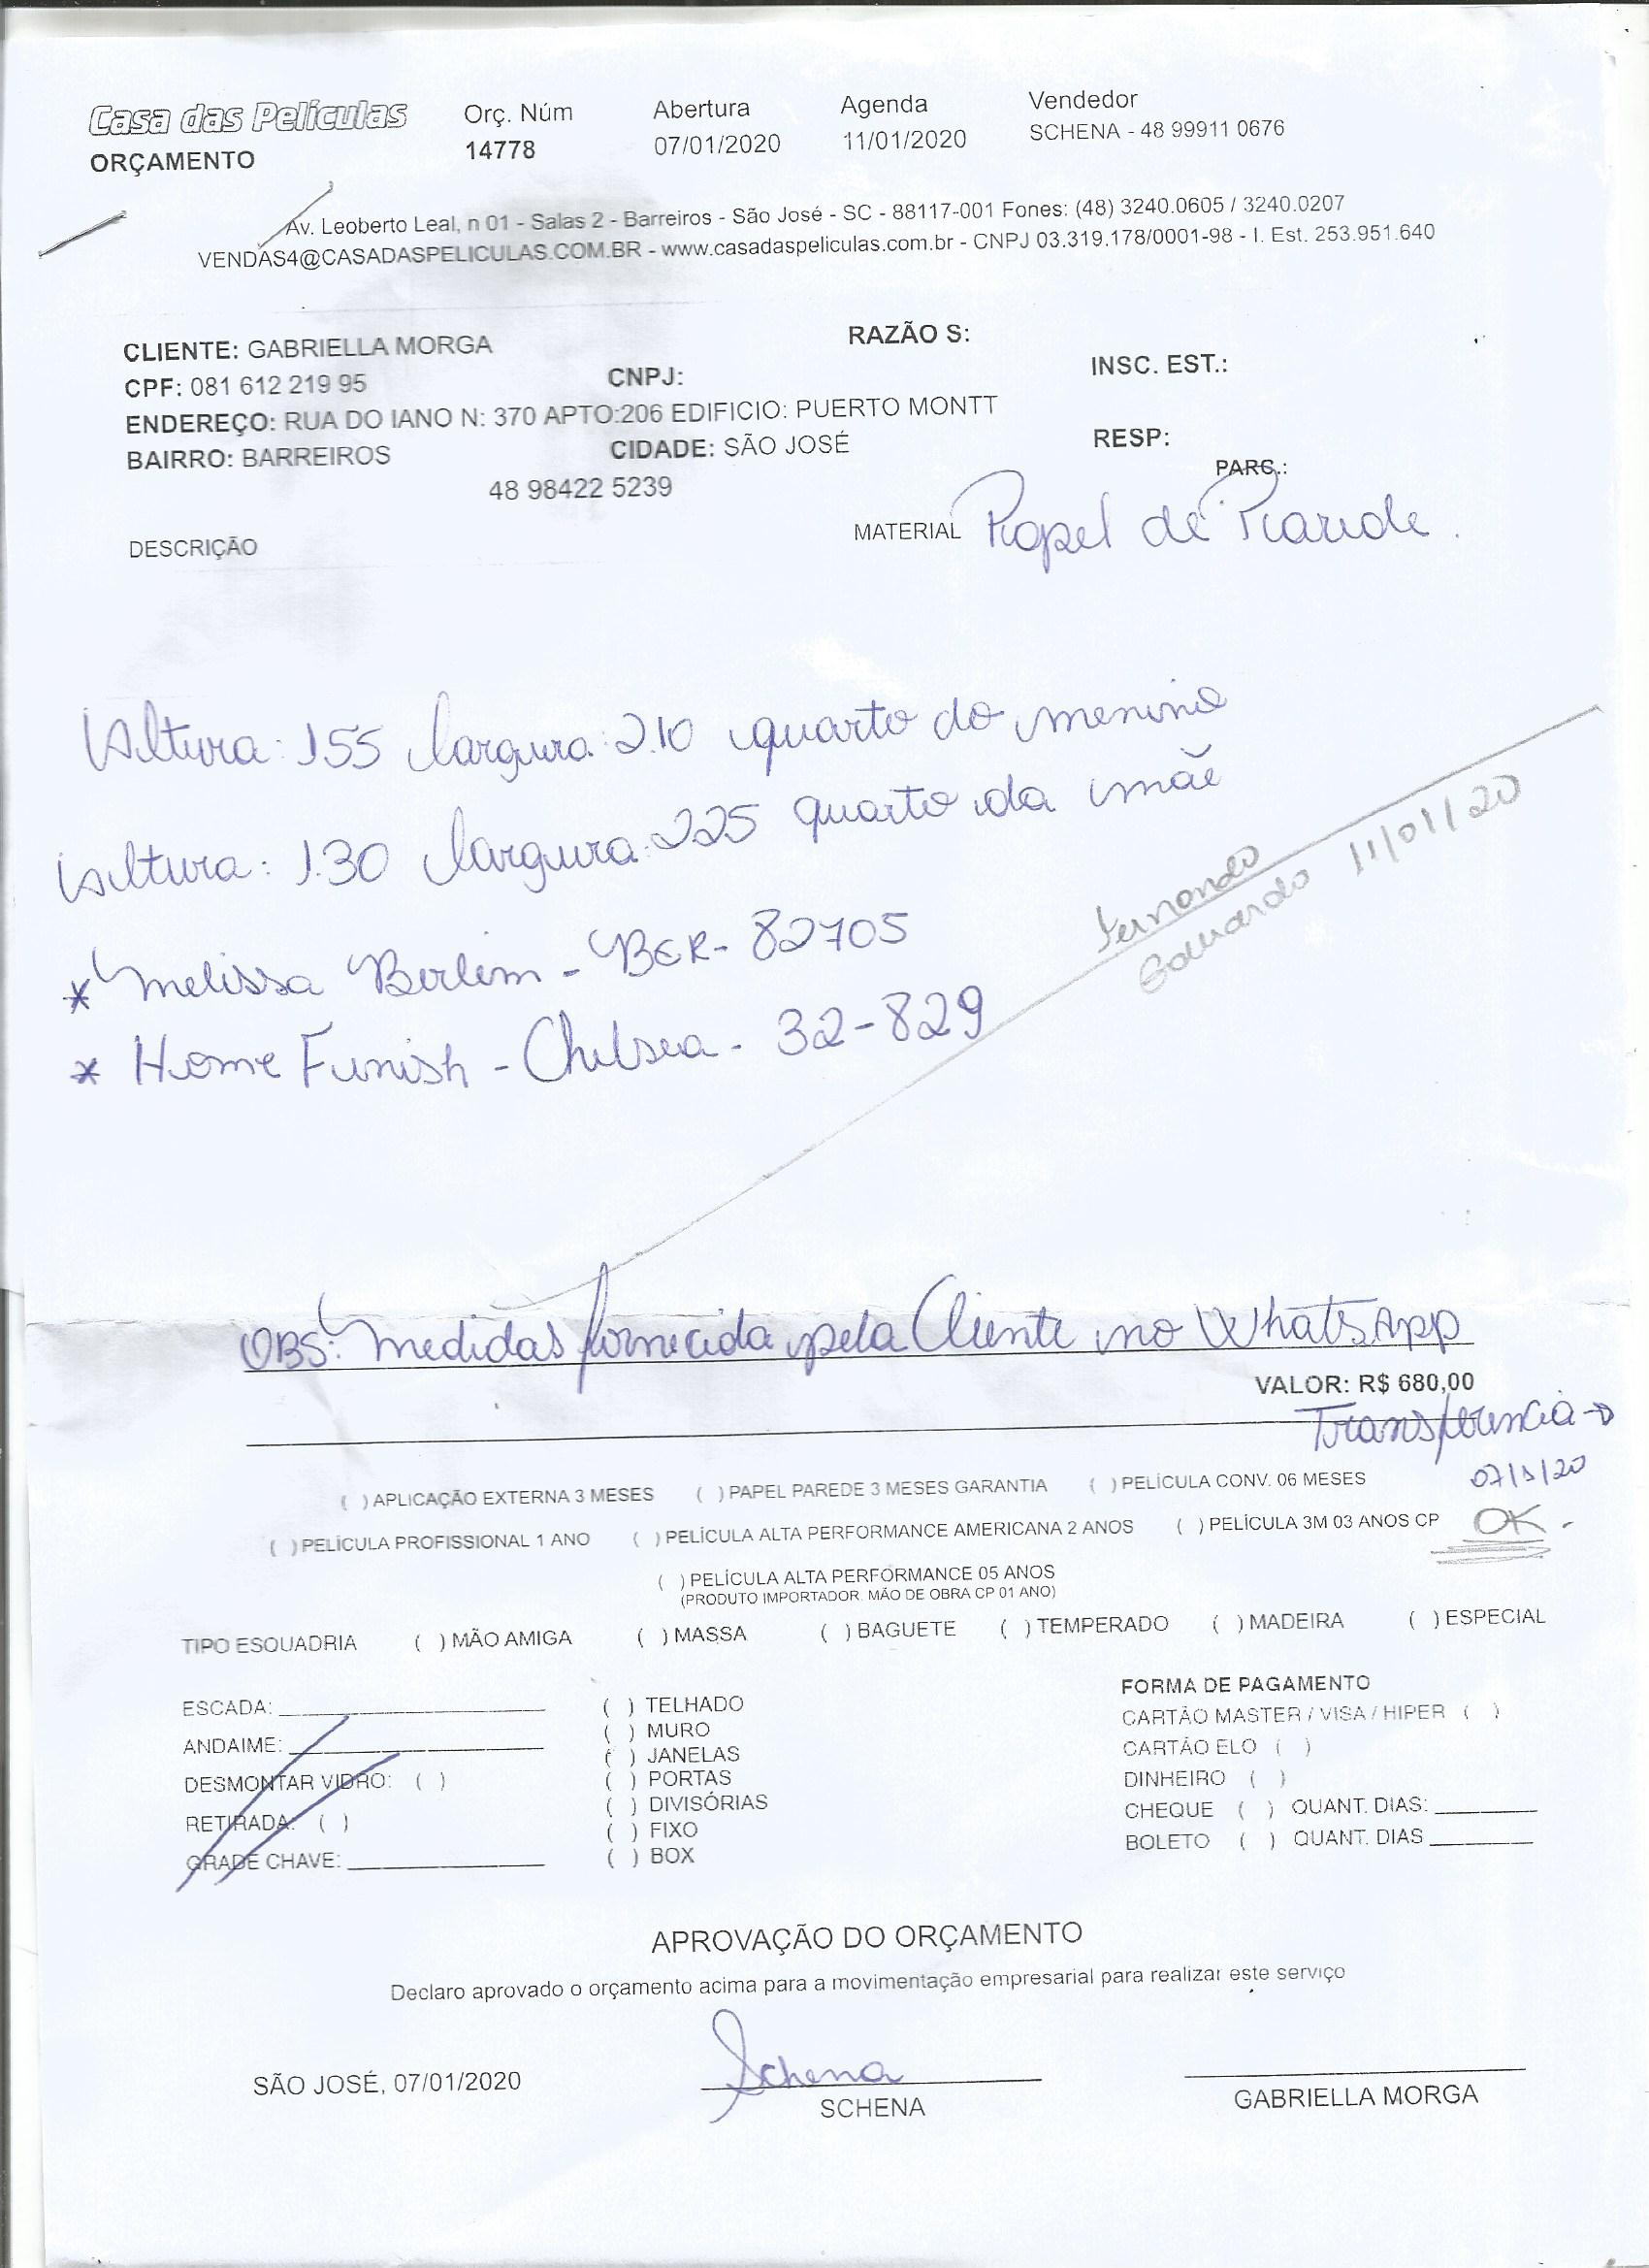 Casa das Películas Orç. Núm Abertura Agenda Vendedor
ORÇAMENTO 14778 07/01/2020 11/01/2020 SCHENA - 48 99911 0676
Av. Leoberto Leal, n 01 - Salas 2 - Barreiros - São José - SC - 88117-001 Fones: (48) 3240.0605 / 3240.0207
VENDAS4@CASADASPELICULAS.COM.BR - www.casadaspeliculas.com.br - CNPJ 03.319.178/0001-98 - I. Est. 253.951.640
CLIENTE: GABRIELLA MORGA RAZÃO S:
CPF: 081 612 219 95 CNPJ: INSC. EST.:
ENDEREÇO: RUA DO IANO N: 370 APTO:206 EDIFICIO: PUERTO MONTT
BAIRRO: BARREIROS CIDADE: SÃO JOSÉ RESP:
48 98422 5239 PARC.:
DESCRIÇÃO MATERIAL Papel de Parede.
Altura: 1.55 largura: 2.10 quarto do menino
Altura: 1.30 largura: 2.25 quarto da mãe
* Melissa Berlim - BER - 82705
* Home Funish - Chelsea - 32-829
Fernando
Eduardo 11/01/20
OBS: Medidas fornecida pela Cliente no WhatsApp
VALOR: R$ 680,00
Transferência →
07/1/20
( ) APLICAÇÃO EXTERNA 3 MESES ( ) PAPEL PAREDE 3 MESES GARANTIA ( ) PELÍCULA CONV. 06 MESES
( ) PELÍCULA PROFISSIONAL 1 ANO ( ) PELÍCULA ALTA PERFORMANCE AMERICANA 2 ANOS ( ) PELÍCULA 3M 03 ANOS CP OK -
( ) PELÍCULA ALTA PERFORMANCE 05 ANOS
(PRODUTO IMPORTADOR. MÃO DE OBRA CP 01 ANO)
TIPO ESQUADRIA ( ) MÃO AMIGA ( ) MASSA ( ) BAGUETE ( ) TEMPERADO ( ) MADEIRA ( ) ESPECIAL
ESCADA:
ANDAIME:
DESMONTAR VIDRO: ( )
RETIRADA: ( )
GRADE CHAVE:
( ) TELHADO
( ) MURO
( ) JANELAS
( ) PORTAS
( ) DIVISÓRIAS
( ) FIXO
( ) BOX
FORMA DE PAGAMENTO
CARTÃO MASTER / VISA / HIPER ( )
CARTÃO ELO ( )
DINHEIRO ( )
CHEQUE ( ) QUANT. DIAS:
BOLETO ( ) QUANT. DIAS
APROVAÇÃO DO ORÇAMENTO
Declaro aprovado o orçamento acima para a movimentação empresarial para realizar este serviço
Schena
SÃO JOSÉ, 07/01/2020 SCHENA GABRIELLA MORGA